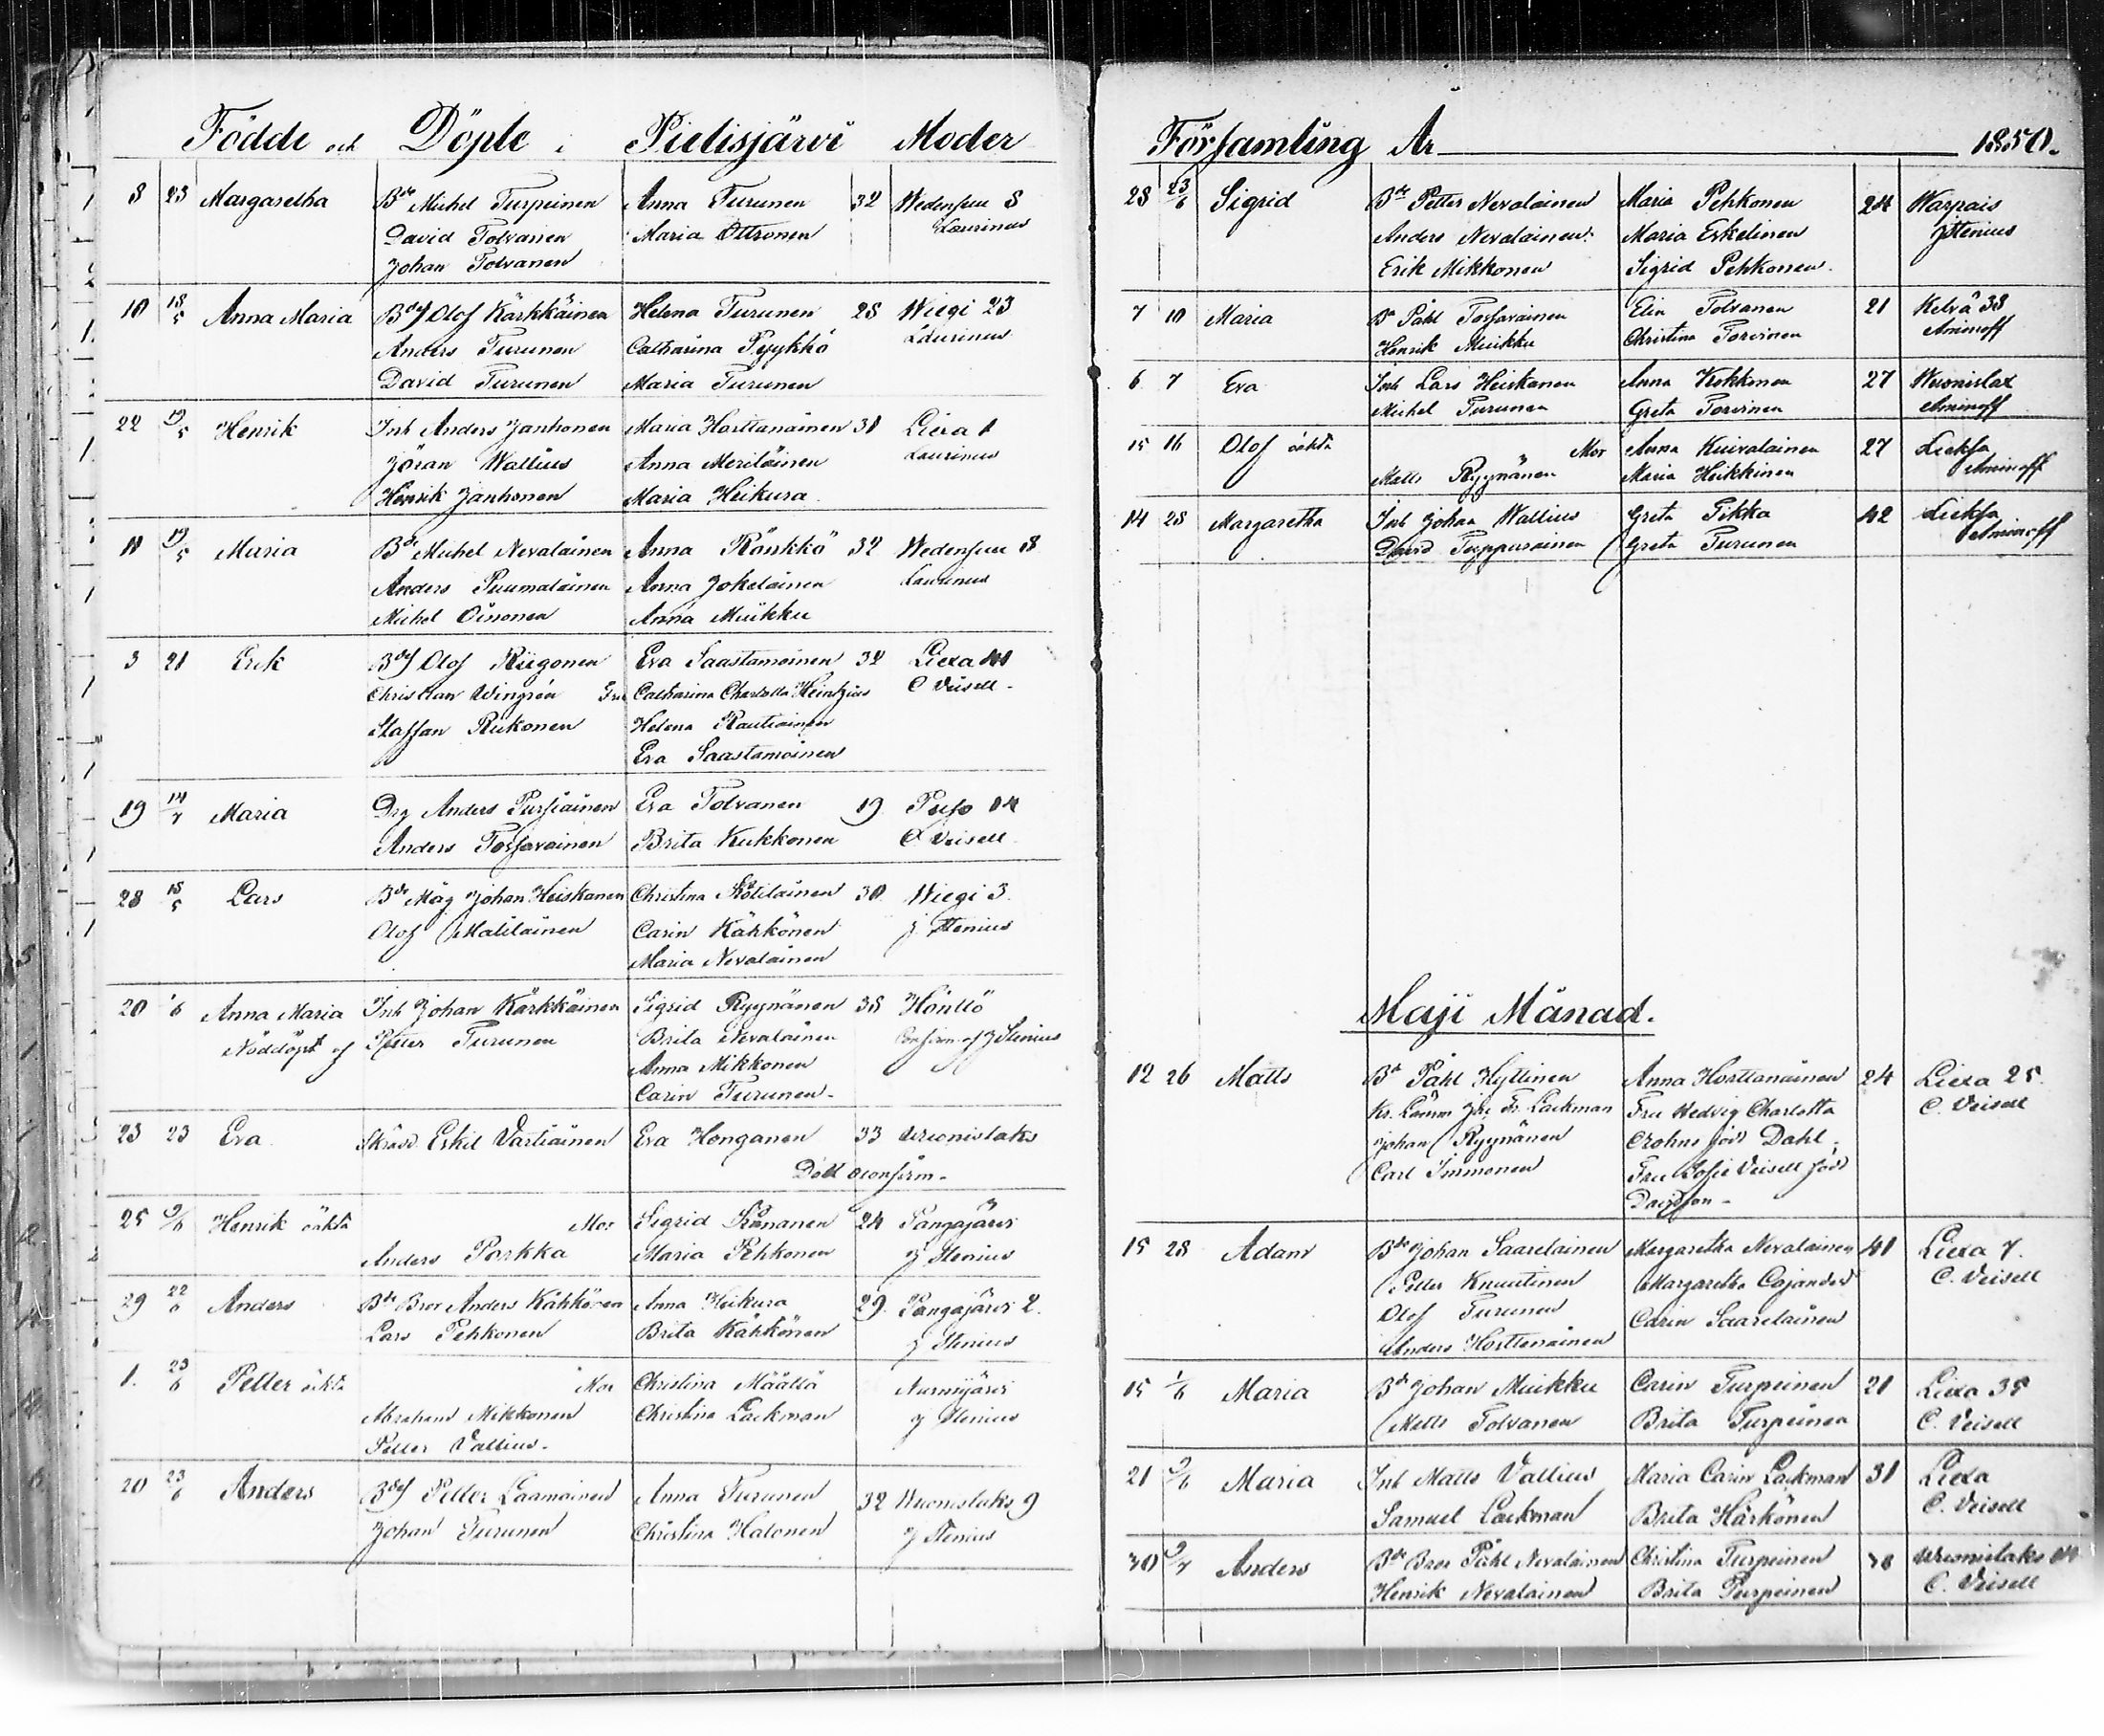 Födde och Döpte i Pielisjärvi Moder
8 23 Margaretha Bde Michel Turpeinen Anna Turunen 32 Wedensuu 8
David Tolvanen Maria Ottronen Laurinus
Johan Tolvanen
10 18/5 Anna Maria Bdes Olof Kärkkäinen Helena Turunen 28 Wiegi 23
Anders Turunen Catharina Pyykkö Laurinus
David Turunen Maria Turunen
22 19/5 Henrik Inh Anders Janhonen Maria Horttanainen 31 Liexa 1
Jöran Wallius Anna Meriläinen Laurinus
Henrik Janhonen Maria Heikura
11 19/5 Maria Bde Michel Nevalainen Anna Rönkkö 32 Wedensuu 8
Anders Puumalainen Anna Jokelainen Laurinus
Michel Oinonen Anna Muikku
3 21 Erik Bdes Olof Riigonen Eva Saastamoinen 32 Liexa 41
Christian Wingrén Fru Catharina Charlotta Heintzius C Veisell
Staffan Riikonen Helena Rautiainen
Eva Saastamoinen
19 14/7 Maria Drg Anders Pursiainen Eva Tolvanen 19 Puso 14
Anders Torsavainen Brita Kukkonen C Veisell
28 18/5 Lars Bde Måg Johan Heiskanen Christina Kotilainen 30 Wiegi 3.
Olof Matilainen Carin Kähkönen J Stenius
Maria Nevalainen
20 6 Anna Maria Inh Johan Kärkkäinen Sigrid Ryynänen 38 Hönttö
Nöddöpt af Petter Turunen Brita Nevalainen Confirm. af J Stenius
Anna Mikkonen
Carin Turunen
23 23 Eva Eskil Vartiainen Eva Honganen 33 Wuonislaks
Död oconfirm.
25 9/6 Henrik oäkta Mor Sigrid Kananen 24 Pangajärvi
Anders Porkka Maria Pehkonen J Stenius
29 22/6 Anders Bde Bror Anders Kähkönen Anna Heikura 29 Pangajärvi 2.
Lars Pehkonen Brita Kähkönen J Stenius
1. 23/6 Petter oäkta Mor Christina Määttä Nurmijärvi
Abraham Mikkonen Christina Lackman J Stenius
Petter Vallius
20 23/6 Anders Bdes Petter Laamainen Anna Turunen 32 Wuonislaks 9
Johan Turunen Christina Halonen J Stenius
Församling År 1850.
28 23/6 Sigrid Bde Petter Nevalainen Maria Pehkonen 24 Warpais
Anders Nevalainen Maria Eskelinen J Stenius
Erik Mikkonen Sigrid Pehkonen
7 10 Maria Bde Påhl Torsavainen Elin Tolvanen 21 Kelvä 38
Henrik Muikku Christina Torvinen Aminoff
6 7 Eva Inh Lars Heiskanen Anna Kokkonen 27 Wuonislax
Michel Turunen Greta Torvinen Aminoff
15 16 Olof oäkta Mor Anna Kuivalainen 27 Lieksa
Matts Ryynänen Maria Heikkinen Aminoff
14 28 Margaretha Inh Johan Wallius Greta Pikka 42 Lieksa
David Tuppurainen Greta Turunen Aminoff
Maji Månad.
12 26 Matts Bde Påhl Hyttinen Anna Horttanainen 24 Liexa 25
Kr. Länm Joh Fr. Lackman Fru Hedvig Charlotta C. Veisell
Johan Ryynänen Crohns född Dahl
Carl Immonen Fru Sofie Veisell född
Davidson
15 28 Adam Bde Johan Saarelainen Margaretha Nevalainen 41 Liexa 7.
Petter Knuutinen Margaretha Cajander C. Veisell
Olof Turunen Carin Saarelainen
Anders Horttanainen
15 1/6 Maria Bde Johan Muikku Carin Turpeinen 21 Liexa 35
Matts Tolvanen Brita Turpeinen C. Veisell
21 9/6 Maria Inh Matts Vallius Maria Carin Lackman 31 Liexa
Samuel Lackman Brita Härkönen C. Veisell
30 9/7 Anders Bde Bror Påhl Nevalainen Christina Turpeinen Wuonislaks 14
Henrik Nevalainen Brita Turpeinen C. Veisell